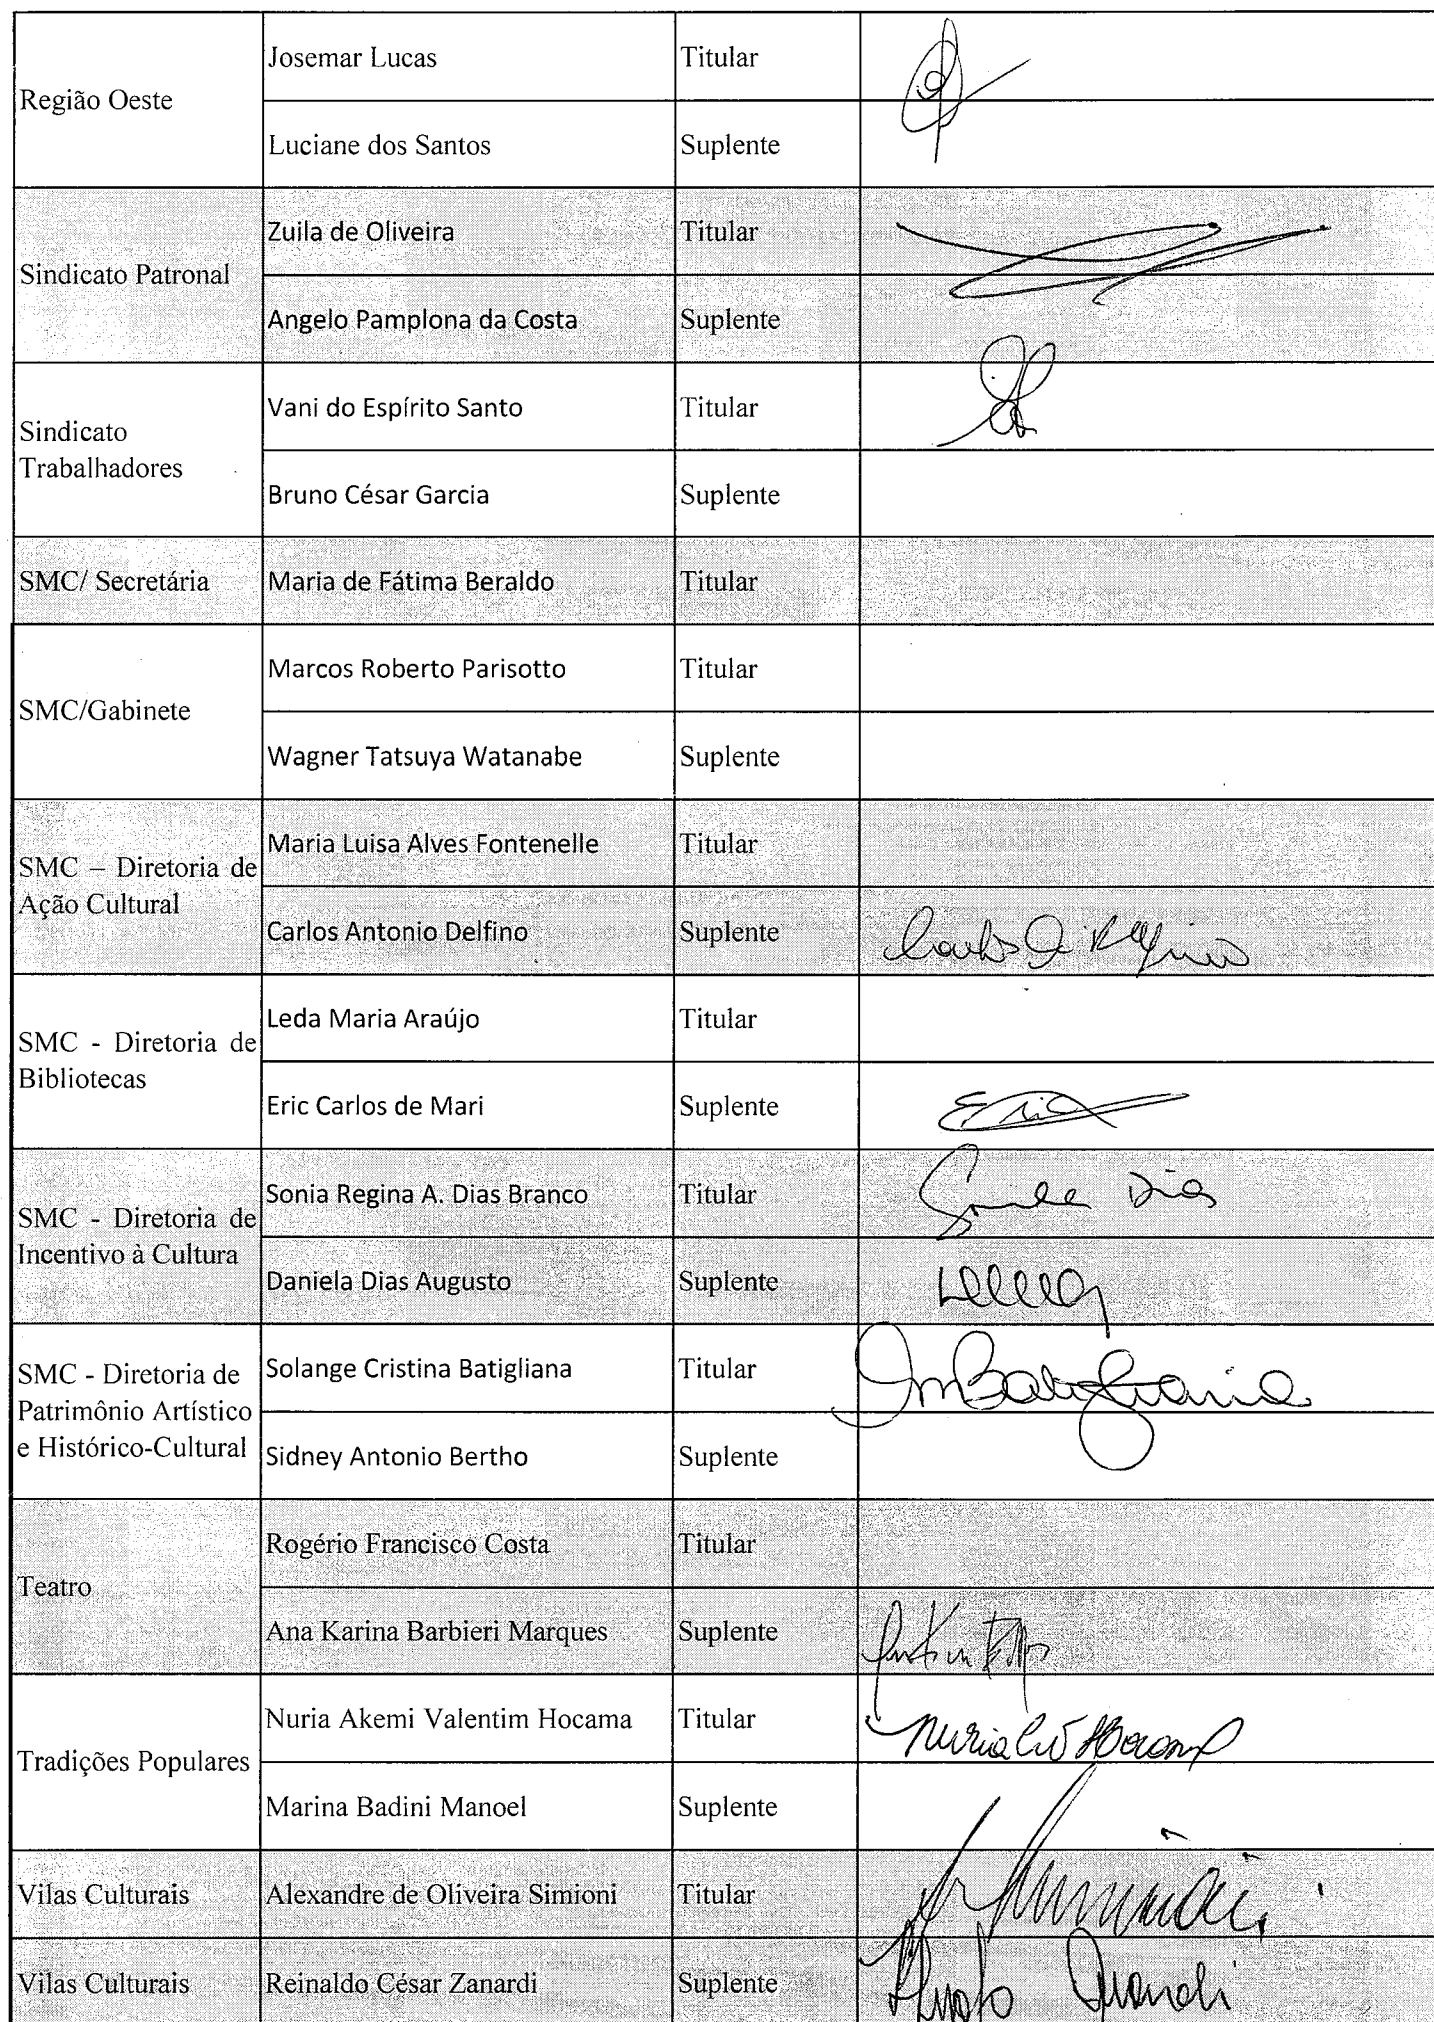 Região Oeste
Josemar Lucas Titular
Luciane dos Santos Suplente
Sindicato Patronal
Zuila de Oliveira Titular
Angelo Pamplona da Costa Suplente
Sindicato
Trabalhadores
Vani do Espírito Santo Titular
Bruno César Garcia Suplente
SMC/ Secretária Maria de Fátima Beraldo Titular
SMC/Gabinete
Marcos Roberto Parisotto Titular
Wagner Tatsuya Watanabe Suplente
SMC – Diretoria de
Ação Cultural
Maria Luisa Alves Fontenelle Titular
Carlos Antonio Delfino Suplente
SMC - Diretoria de
Bibliotecas
Leda Maria Araújo Titular
Eric Carlos de Mari Suplente Eric
SMC - Diretoria de
Incentivo à Cultura
Sonia Regina A. Dias Branco Titular Dias
Daniela Dias Augusto Suplente
SMC - Diretoria de
Patrimônio Artístico
e Histórico-Cultural
Solange Cristina Batigliana Titular Batigliana
Sidney Antonio Bertho Suplente
Teatro
Rogério Francisco Costa Titular
Ana Karina Barbieri Marques Suplente
Tradições Populares
Nuria Akemi Valentim Hocama Titular Nuria
Marina Badini Manoel Suplente
Vilas Culturais Alexandre de Oliveira Simioni Titular
Vilas Culturais Reinaldo César Zanardi Suplente